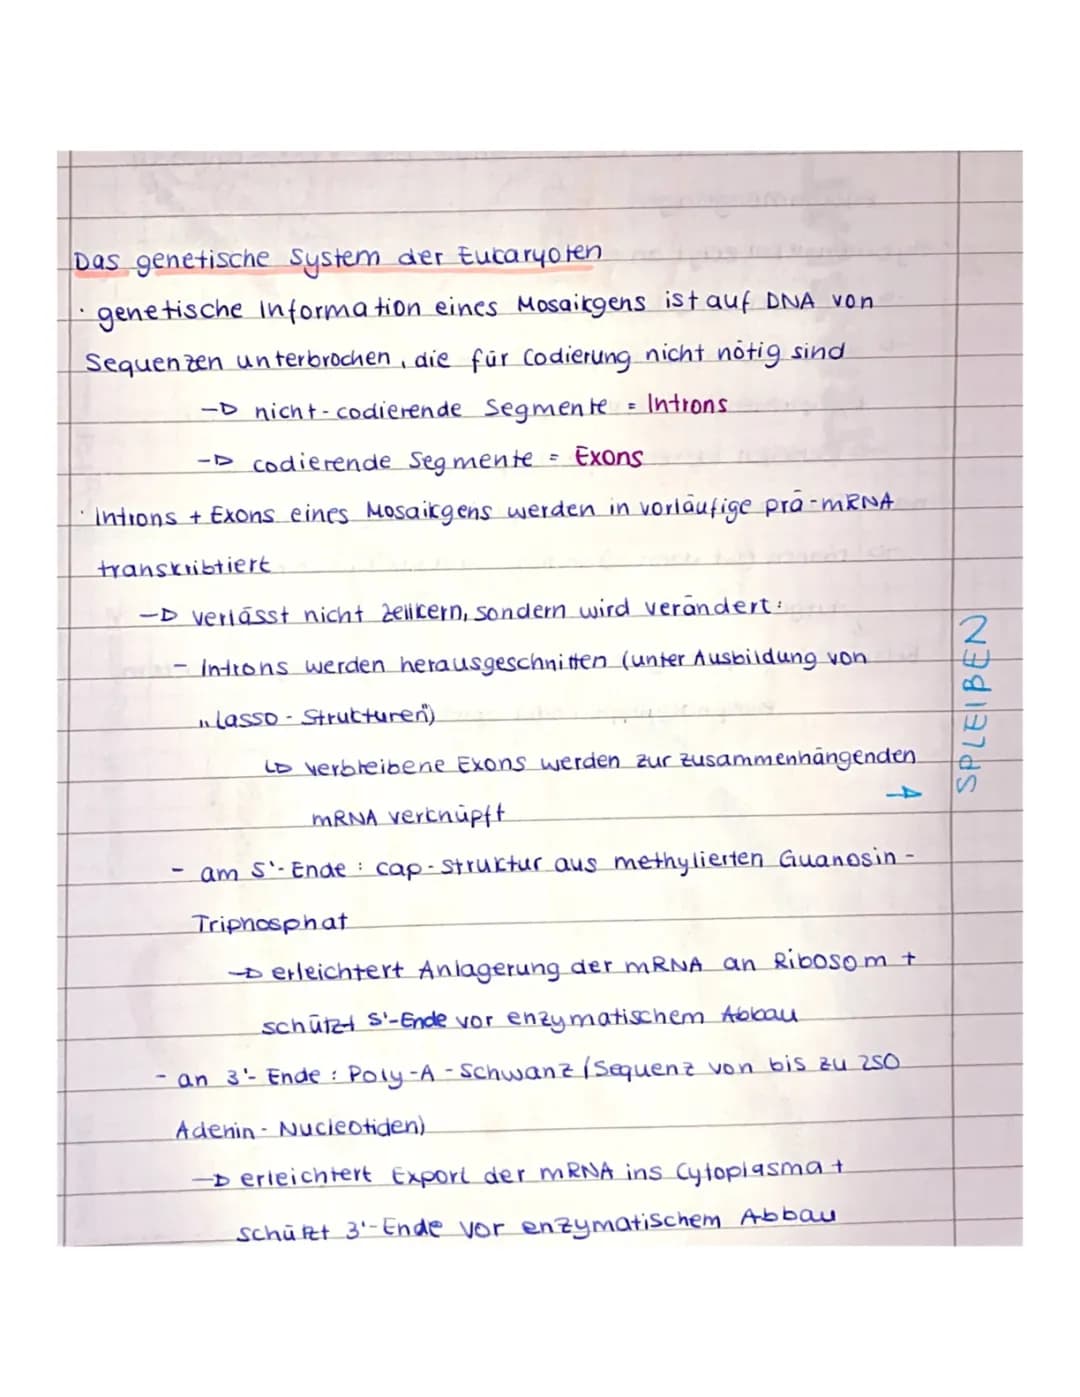 Das genetische System der Eucaryoten
· genetische Information eines Mosaikgens ist auf DNA von
Sequenzen unterbrochen, die für Codierung nicht nötig sind
→ nicht-codierende Segmente = Introns
→ codierende Segmente = Exons
· Introns + Exons eines Mosaikgens werden in vorläufige prä-mRNA
transkribtiert
→ verlässt nicht Zellkern, sondern wird verändert:
- Introns werden herausgeschnitten (unter Ausbildung von
„Lasso-Strukturen“)
↳ verbleibene Exons werden zur zusammenhängenden
mRNA verknüpft
→ SPLEIßEN
- am 5'-Ende: cap-Struktur aus methylierten Guanosin-
Triphosphat
→ erleichtert Anlagerung der mRNA an Ribosom +
schützt 5'-Ende vor enzymatischem Abbau
- an 3'-Ende: Poly-A-Schwanz (Sequenz von bis zu 250
Adenin-Nucleotiden)
→ erleichtert Export der mRNA ins Cytoplasma +
schützt 3'-Ende vor enzymatischem Abbau